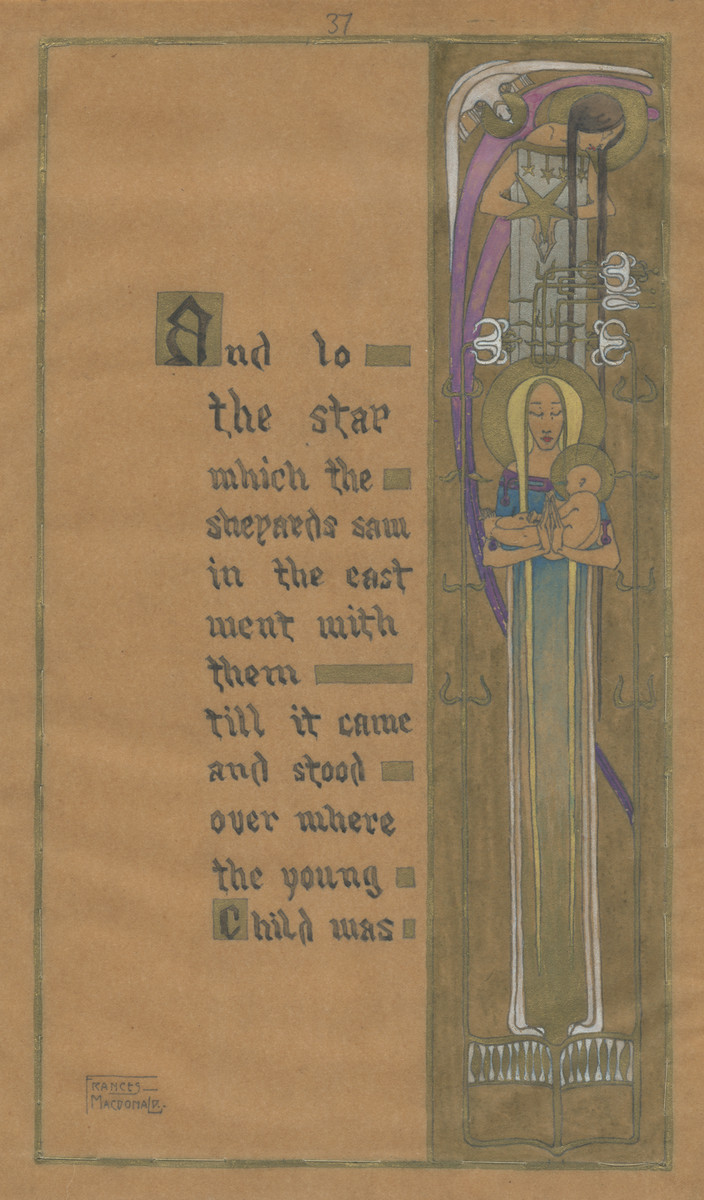 37
And lo
the star
which the
shepards saw
in the east
went with
them
till it came
and stood
over where
the young
Child was
FRANCES
MACDONALD.